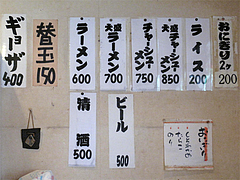 おにぎり2ケ
200
ライス
200
大盛
チャーシュー
メン
850
チャーシュー
メン
750
大盛
ラーメン
700
ラーメン
600
替玉
150
ギョーザ
400
ビール
500
清酒
500
おにぎり